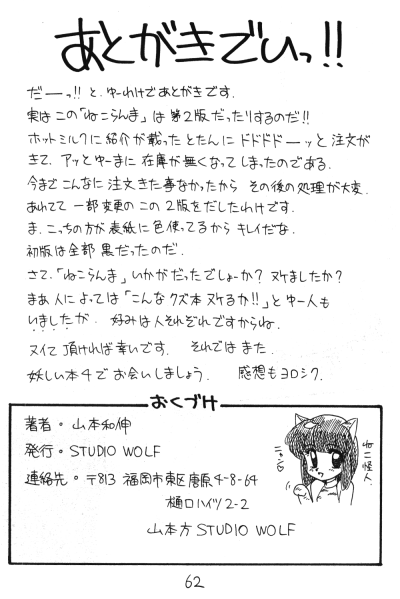 あとがきでいっ!!
だーっ!! と、ゆーわけであとがきです.
実はこの「ねこらんま」は第2版だったりするのだ!!
ホットミルクに紹介が載ったとたんにドドドドーッと注文が
きて、アッとゆーまに在庫が無くなってしまったのである.
今までこんなに注文きた事なかったから その後の処理が大変.
あわてて一部変更のこの2版をだしたわけです.
ま、こっちの方が表紙に色使ってるからキレイだな.
初版は全部黒だったのだ.
さて、「ねこらんま」いかがだったでしょーか? ヌケましたか?
まあ人によっては「こんなクズ本ヌケるか!!」とゆー人も
いましたが、好みは人それぞれですからね.
ヌイて頂ければ幸いです. それではまた.
妖しい本4でお会いしましょう. 感想もヨロシク.
おくづけ
著者・山本和伸
発行・STUDIO WOLF
連絡先・〒813 福岡市東区唐原4-8-64
樋口ハイツ2-2
山本方 STUDIO WOLF
ねこ怪人.
62